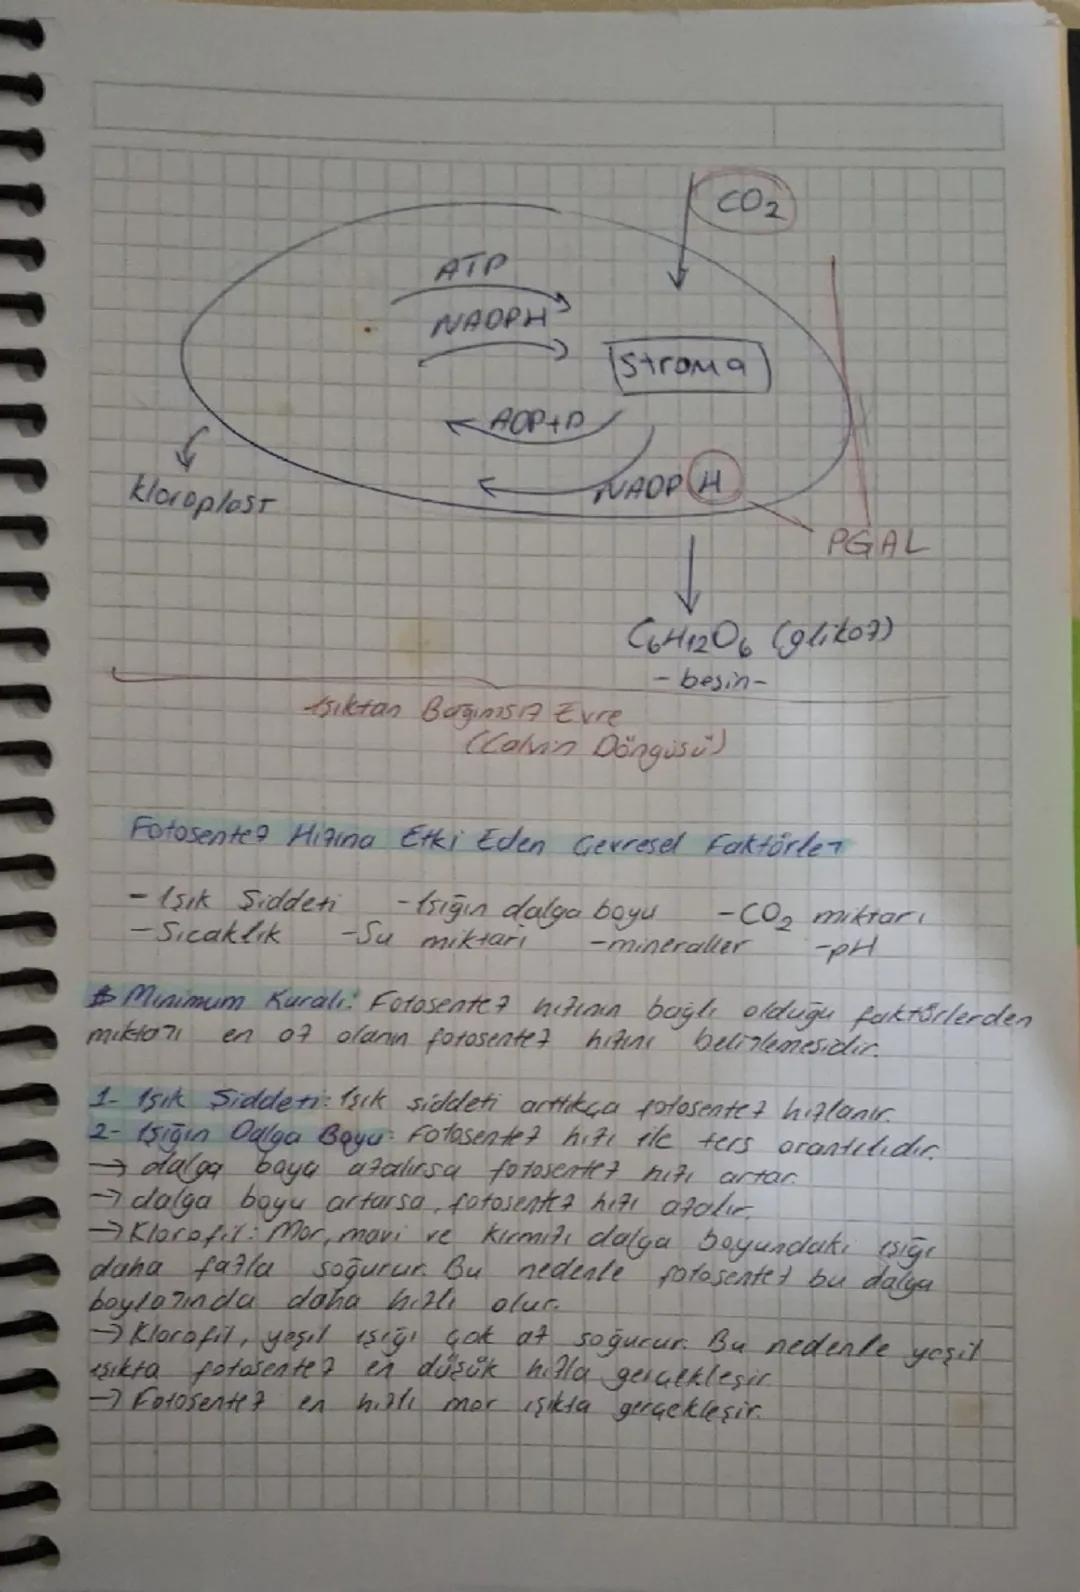 CO2
ATP
NADPH
Stroma
ADP+P
NADP H
kloroplast
PGAL
C6H12O6 (glikoz)
- besin-
Işıktan Bağımsız Evre
(Calvin Döngüsü)
Fotosentez Hızına Etki Eden Çevresel Faktörler
- Işık Şiddeti - Işığın dalga boyu - CO2 miktarı
- Sıcaklık - Su miktarı - mineraller - pH
Minimum Kuralı: Fotosentez hızının bağlı olduğu faktörlerden
miktarı en az olanın fotosentez hızını belirlemesidir.
1- Işık Şiddeti: Işık şiddeti arttıkça fotosentez hızlanır.
2- Işığın Dalga Boyu: Fotosentez hızı ile ters orantılıdır.
→ dalga boyu azalırsa fotosentez hızı artar.
→ dalga boyu artarsa, fotosentez hızı azalır.
→ Klorofil: Mor, mavi ve kırmızı dalga boyundaki ışığı
daha fazla soğurur. Bu nedenle fotosentez bu dalga
boylarında daha hızlı olur.
→ Klorofil, yeşil ışığı çok az soğurur. Bu nedenle yeşil
ışıkta fotosentez en düşük hızla gerçekleşir.
→ Fotosentez en hızlı mor ışıkta gerçekleşir.